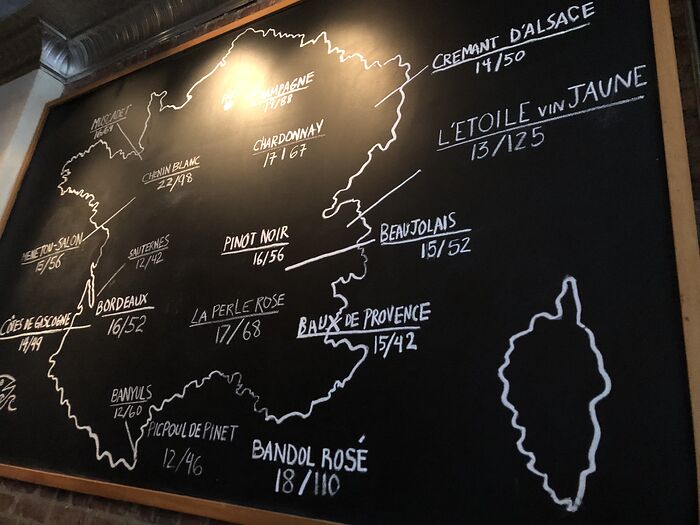 CREMANT D'ALSACE
14/50
CHAMPAGNE
19/88
L'ETOILE VIN JAUNE
13/125
MUSCADET
16/68
CHARDONNAY
17/67
CHENIN BLANC
22/98
MENETOU-SALON
15/56
SAUTERNES
12/42
PINOT NOIR
16/56
BEAUJOLAIS
15/52
CÔTES DE GASCOGNE
14/49
BORDEAUX
16/52
LA PERLE ROSE
17/68
BAUX DE PROVENCE
15/42
BANYULS
12/60
PICPOUL DE PINET
12/46
BANDOL ROSÉ
18/110